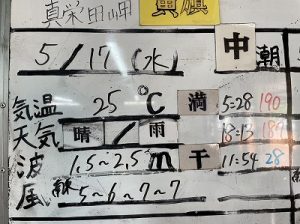 真栄田岬 黄旗
5/17(水) 中潮
気温 25℃ 満 5:28 190
天気 晴/雨 18:13 187
波 1.5~2.5m 干 11:54 28
風 南 5~6~7~7